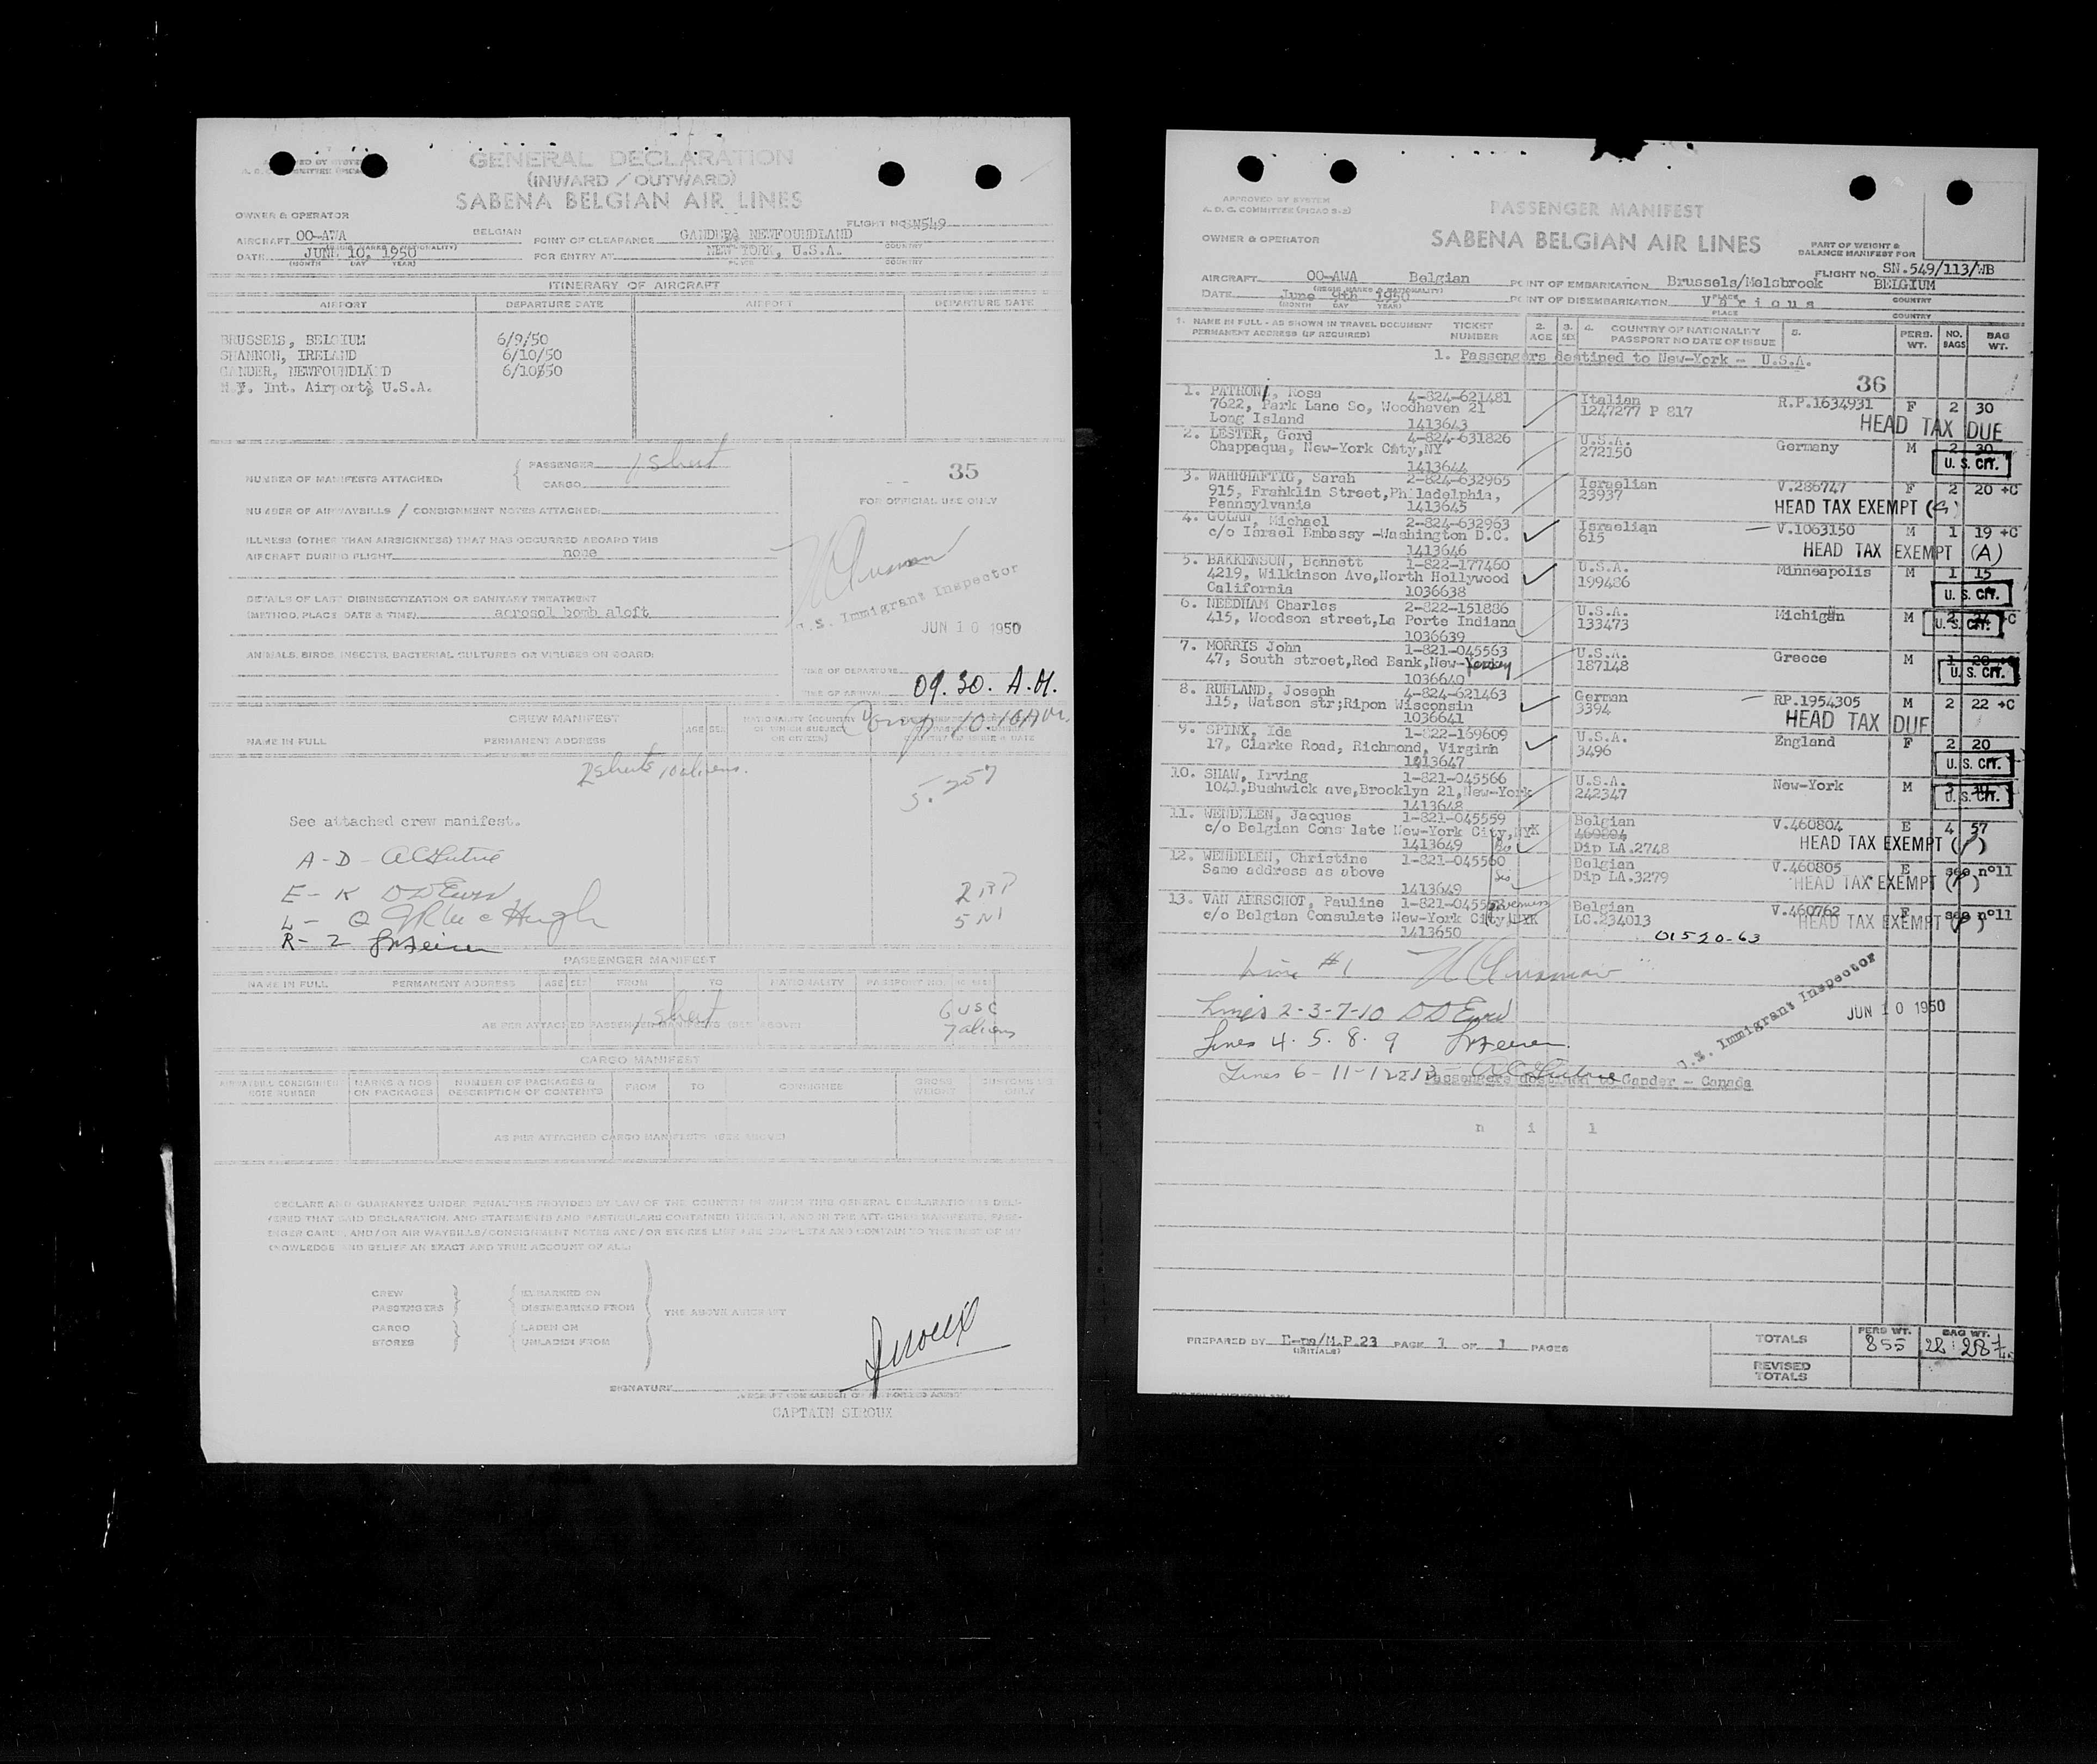 GENERAL DECLARATION
(INWARD / OUTWARD)
SABENA BELGIAN AIR LINES
OWNER & OPERATOR
FLIGHT NO SN549
AIRCRAFT OO-AWA BELGIAN POINT OF CLEARANCE GANDER, NEWFOUNDLAND
(REGIS MARKS & NATIONALITY) COUNTRY
DATE JUNE 10, 1950 FOR ENTRY AT NEW YORK, U.S.A.
(MONTH DAY YEAR) PLACE COUNTRY
ITINERARY OF AIRCRAFT
AIRPORT DEPARTURE DATE AIRPORT DEPARTURE DATE
BRUSSELS, BELGIUM 6/9/50
SHANNON, IRELAND 6/10/50
GANDER, NEWFOUNDLAND 6/10/50
N.Y. Int. Airport, U.S.A.
PASSENGER 1 sheet
NUMBER OF MANIFESTS ATTACHED:
CARGO
35
FOR OFFICIAL USE ONLY
NUMBER OF AIRWAYBILLS / CONSIGNMENT NOTES ATTACHED:
ILLNESS (OTHER THAN AIRSICKNESS) THAT HAS OCCURRED ABOARD THIS
AIRCRAFT DURING FLIGHT none
DETAILS OF LAST DISINSECTIZATION OR SANITARY TREATMENT
(METHOD, PLACE DATE & TIME) aerosol bomb aloft
U.S. Immigrant Inspector
JUN 10 1950
ANIMALS, BIRDS, INSECTS, BACTERIAL CULTURES OR VIRUSES ON BOARD:
TIME OF DEPARTURE
TIME OF ARRIVAL 09.30. A.M.
CREW MANIFEST
NAME IN FULL PERMANENT ADDRESS AGE SEX NATIONALITY (COUNTRY OF WHICH SUBJECT OR CITIZEN)
2 sheets 10 aliens.
5.257
See attached crew manifest.
A - D -
E - K
L - Q
R - Z
5 NI
PASSENGER MANIFEST
NAME IN FULL PERMANENT ADDRESS AGE SEX FROM TO NATIONALITY PASSPORT NO.
1 sheet
AS PER ATTACHED PASSENGER MANIFESTS (SEE ABOVE)
6 USC
7 aliens
CARGO MANIFEST
AIRWAYBILL CONSIGNMENT NOTE NUMBER MARKS & NOS ON PACKAGES NUMBER OF PACKAGES & DESCRIPTION OF CONTENTS FROM TO CONSIGNEE GROSS WEIGHT CUSTOMS USE ONLY
AS PER ATTACHED CARGO MANIFESTS (SEE ABOVE)
DECLARE AND GUARANTEE UNDER PENALTIES PROVIDED BY LAW OF THE COUNTRY IN WHICH THIS GENERAL DECLARATION IS DELI-
VERED THAT SAID DECLARATION, AND STATEMENTS AND PARTICULARS CONTAINED THEREIN, AND IN THE ATTACHED MANIFESTS, PASS-
ENGER CARDS, AND/OR AIR WAYBILLS/CONSIGNMENT NOTES AND/OR STORES LIST ARE COMPLETE AND CONTAIN TO THE BEST OF MY
KNOWLEDGE AND BELIEF AN EXACT AND TRUE ACCOUNT OF ALL:
CREW EMBARKED ON
PASSENGERS DISEMBARKED FROM THE ABOVE AIRCRAFT
CARGO LADEN ON
STORES UNLADEN FROM
Siroux
SIGNATURE
CAPTAIN SIROUX
APPROVED BY SYSTEM
A. D. C. COMMITTEE (PICAO S-2)
PASSENGER MANIFEST
SABENA BELGIAN AIR LINES
OWNER & OPERATOR
PART OF WEIGHT &
BALANCE MANIFEST FOR
AIRCRAFT OO-AWA Belgian POINT OF EMBARKATION Brussels/Melsbroek BELGIUM FLIGHT NO. SN.549/113/WB
(REGIS MARKS & NATIONALITY) PLACE COUNTRY
DATE June 9th 1950 POINT OF DISEMBARKATION Various
(MONTH DAY YEAR) PLACE COUNTRY
1. NAME IN FULL - AS SHOWN IN TRAVEL DOCUMENT TICKET 2. 3. 4. COUNTRY OF NATIONALITY 5. PERS. NO. BAG
PERMANENT ADDRESS (IF REQUIRED) NUMBER AGE SEX PASSPORT NO DATE OF ISSUE WT. BAGS WT.
1. Passengers destined to New-York - U.S.A.
36
1. PATRONI, Rosa 4-824-621481 Italian R.P.1634931 F 2 30
7622, Park Lane So, Woodhaven 21 1247277 P 817
Long Island 1413643 HEAD TAX DUE
2. LESTER, Gerd 4-824-631826 U.S.A. Germany M 2 30
Chappaqua, New-York City,NY 272150
1413644 U. S. CIT.
3. WAHRHAFTIG, Sarah 2-824-632965 Israelian V.286747 F 2 20 +C
915, Franklin Street,Philadelphia, 23937
Pennsylvania 1413645 HEAD TAX EXEMPT
4. GOLAN, Michael 2-824-632963 Israelian V.1063150 M 1 19 +C
c/o Israel Embassy -Washington D.C. 615
1413646 HEAD TAX EXEMPT (A)
5. BAKKENSON, Bennett 1-822-177460 U.S.A. Minneapolis M 1 15
4219, Wilkinson Ave,North Hollywood 199486
California 1036638 U. S. CIT.
6. NEEDHAM Charles 2-822-151886 U.S.A. Michigan M 2 +C
415, Woodson street,La Porte Indiana 133473 U. S. CIT.
1036639
7. MORRIS John 1-821-045563 U.S.A. Greece M 1
47, South street,Red Bank,New-Jersey 187148
1036640 U. S. CIT.
8. RUHLAND, Joseph 4-824-621463 German RP.1954305 M 2 22 +C
115, Watson str;Ripon Wisconsin 3394
1036641 HEAD TAX DUE
9. SPINX, Ida 1-822-169609 U.S.A. England F 2 20
17, Clarke Road, Richmond, Virginh 3496
1413647 U. S. CIT.
10. SHAW, Irving 1-821-045566 U.S.A. New-York M 3
1041,Bushwick ave,Brooklyn 21,New-York 242347
1413648 U. S. CIT.
11. WENDELEN, Jacques 1-821-045559 Belgian V.460804 E 4 57
c/o Belgian Cons late New-York City,NYK 460804
1413649 Dip LA.2748 HEAD TAX EXEMPT
12. WENDELEN, Christine 1-821-045560 Belgian V.460805 E see n°11
Same address as above Dip LA.3279
1413649 Sis HEAD TAX EXEMPT
13. VAN AERSCHOT, Pauline Belgian V.460762 F see n°11
c/o Belgian Consulate New-York City,NYK LC.234013 HEAD TAX EXEMPT
1413650
01520-63
Line #1
Lines 2-3-7-10
Lines 4. 5. 8. 9
Lines 6-11-12-13
U.S. Immigrant Inspector
JUN 10 1950
Passengers destined to Gander - Canada
n i l
PREPARED BY PAGE 1 OF 1 PAGES
(INITIALS)
TOTALS PERS WT. 855 BAG WT. 28 287.
REVISED
TOTALS